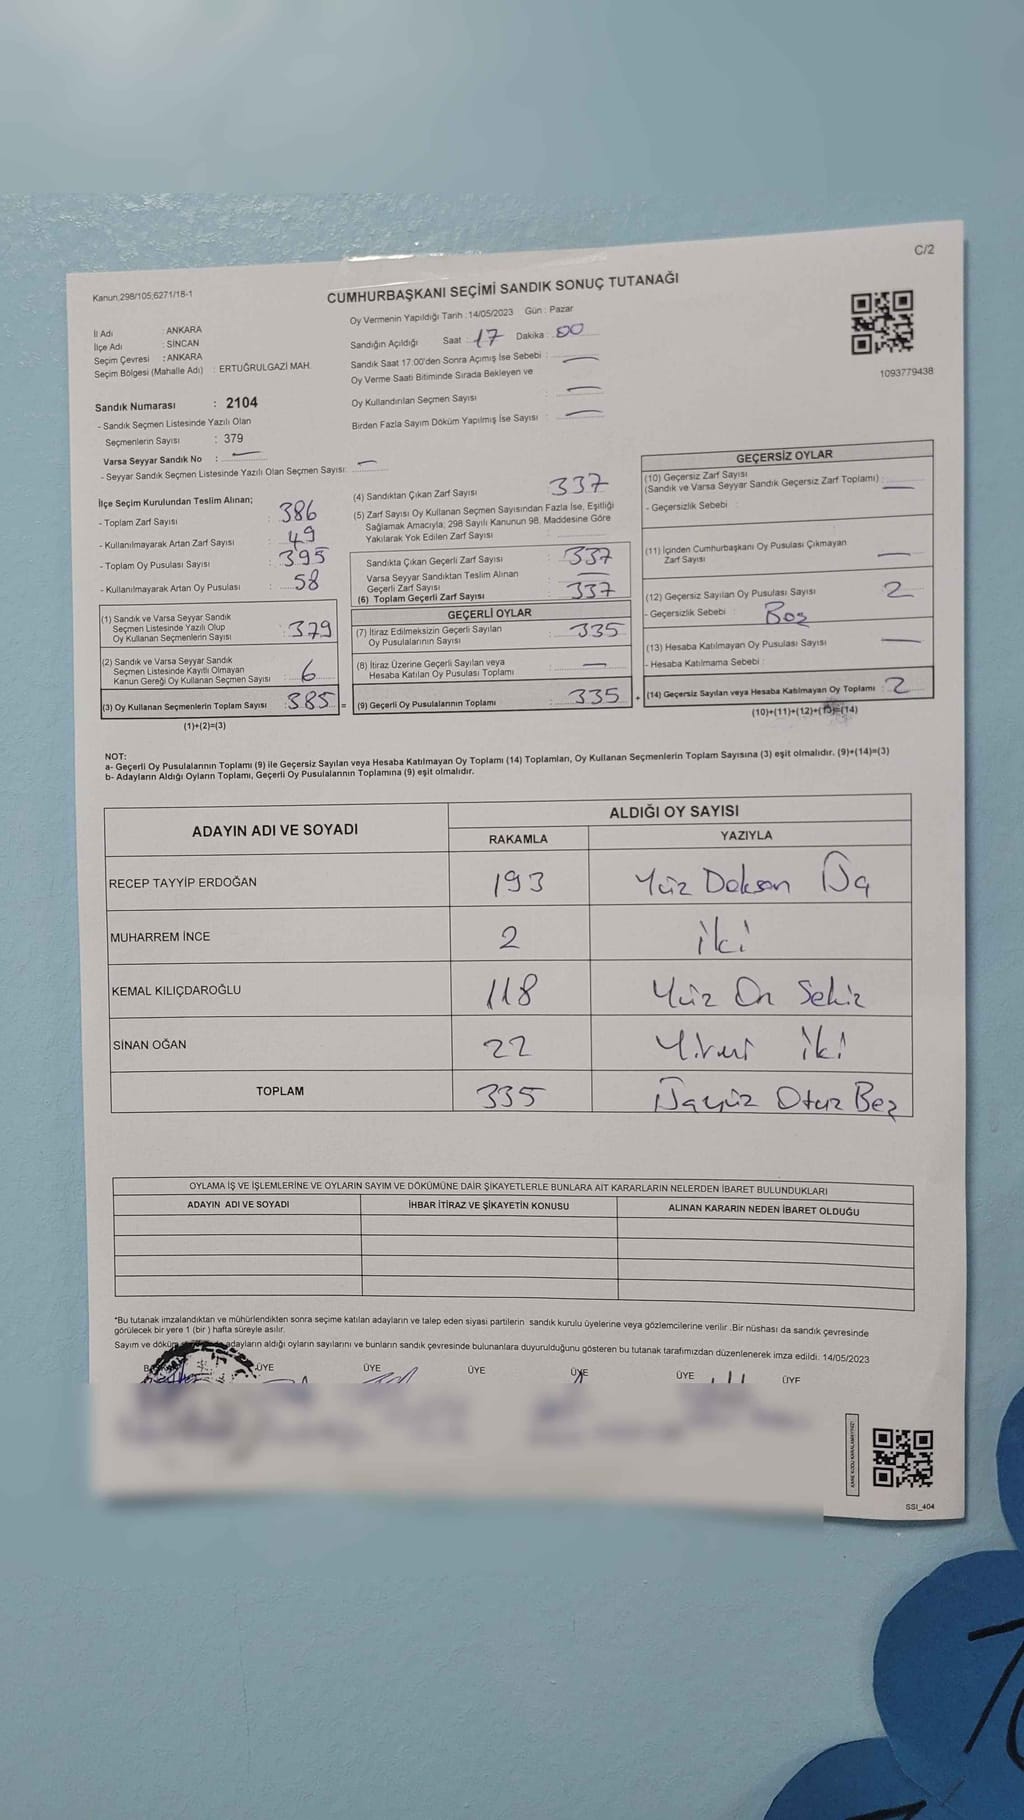 C/2
Kanun,298/105,6271/18-1
CUMHURBAŞKANI SEÇİMİ SANDIK SONUÇ TUTANAĞI
Oy Vermenin Yapıldığı Tarih : 14/05/2023 Gün : Pazar
İl Adı : ANKARA
İlçe Adı : SİNCAN
Seçim Çevresi : ANKARA
Seçim Bölgesi (Mahalle Adı) : ERTUĞRULGAZİ MAH.
Sandık Numarası : 2104
- Sandık Seçmen Listesinde Yazılı Olan
Seçmenlerin Sayısı : 379
Varsa Seyyar Sandık No : —
- Seyyar Sandık Seçmen Listesinde Yazılı Olan Seçmen Sayısı: —
Sandığın Açıldığı Saat : 17 Dakika : 00
Sandık Saat 17.00'den Sonra Açımış İse Sebebi : —
Oy Verme Saati Bitiminde Sırada Bekleyen ve
Oy Kullandırılan Seçmen Sayısı : —
Birden Fazla Sayım Döküm Yapılmış İse Sayısı : —
1093779438
İlçe Seçim Kurulundan Teslim Alınan;
- Toplam Zarf Sayısı : 386
- Kullanılmayarak Artan Zarf Sayısı : 49
- Toplam Oy Pusulası Sayısı : 395
- Kullanılmayarak Artan Oy Pusulası : 58
(1) Sandık ve Varsa Seyyar Sandık
Seçmen Listesinde Yazılı Olup
Oy Kullanan Seçmenlerin Sayısı : 379
(2) Sandık ve Varsa Seyyar Sandık
Seçmen Listesinde Kayıtlı Olmayan
Kanun Gereği Oy Kullanan Seçmen Sayısı : 6
(3) Oy Kullanan Seçmenlerin Toplam Sayısı : 385 =
(1)+(2)=(3)
(4) Sandıktan Çıkan Zarf Sayısı : 337
(5) Zarf Sayısı Oy Kullanan Seçmen Sayısından Fazla İse, Eşitliği
Sağlamak Amacıyla, 298 Sayılı Kanunun 98. Maddesine Göre
Yakılarak Yok Edilen Zarf Sayısı :
Sandıkta Çıkan Geçerli Zarf Sayısı : 337
Varsa Seyyar Sandıktan Teslim Alınan
Geçerli Zarf Sayısı : —
(6) Toplam Geçerli Zarf Sayısı : 337
GEÇERLİ OYLAR
(7) İtiraz Edilmeksizin Geçerli Sayılan
Oy Pusulalarının Sayısı : 335
(8) İtiraz Üzerine Geçerli Sayılan veya
Hesaba Katılan Oy Pusulası Toplamı : —
(9) Geçerli Oy Pusulalarının Toplamı : 335 +
GEÇERSİZ OYLAR
(10) Geçersiz Zarf Sayısı
(Sandık ve Varsa Seyyar Sandık Geçersiz Zarf Toplamı) : —
- Geçersizlik Sebebi :
(11) İçinden Cumhurbaşkanı Oy Pusulası Çıkmayan
Zarf Sayısı : —
(12) Geçersiz Sayılan Oy Pusulası Sayısı : 2
- Geçersizlik Sebebi : Boş
(13) Hesaba Katılmayan Oy Pusulası Sayısı : —
- Hesaba Katılmama Sebebi :
(14) Geçersiz Sayılan veya Hesaba Katılmayan Oy Toplamı : 2
(10)+(11)+(12)+(13)=(14)
NOT:
a- Geçerli Oy Pusulalarının Toplamı (9) ile Geçersiz Sayılan veya Hesaba Katılmayan Oy Toplamı (14) Toplamları, Oy Kullanan Seçmenlerin Toplam Sayısına (3) eşit olmalıdır. (9)+(14)=(3)
b- Adayların Aldığı Oyların Toplamı, Geçerli Oy Pusulalarının Toplamına (9) eşit olmalıdır.
ADAYIN ADI VE SOYADI ALDIĞI OY SAYISI
RAKAMLA YAZIYLA
RECEP TAYYİP ERDOĞAN 193 Yüz Doksan Üç
MUHARREM İNCE 2 iki
KEMAL KILIÇDAROĞLU 118 Yüz On Sekiz
SİNAN OĞAN 22 Yirmi iki
TOPLAM 335 Üçyüz Otuz Beş
OYLAMA İŞ VE İŞLEMLERİNE VE OYLARIN SAYIM VE DÖKÜMÜNE DAİR ŞİKAYETLERLE BUNLARA AİT KARARLARIN NELERDEN İBARET BULUNDUKLARI
ADAYIN ADI VE SOYADI İHBAR İTİRAZ VE ŞİKAYETİN KONUSU ALINAN KARARIN NEDEN İBARET OLDUĞU
*Bu tutanak imzalandıktan ve mühürlendikten sonra seçime katılan adayların ve talep eden siyasi partilerin sandık kurulu üyelerine veya gözlemcilerine verilir .Bir nüshası da sandık çevresinde
görülecek bir yere 1 (bir ) hafta süreyle asılır.
Sayım ve döküm adayların aldığı oyların sayılarını ve bunların sandık çevresinde bulunanlara duyurulduğunu gösteren bu tutanak tarafımızdan düzenlenerek imza edildi. 14/05/2023
ÜYE ÜYE ÜYE ÜYE ÜYE ÜYE
SSI_404